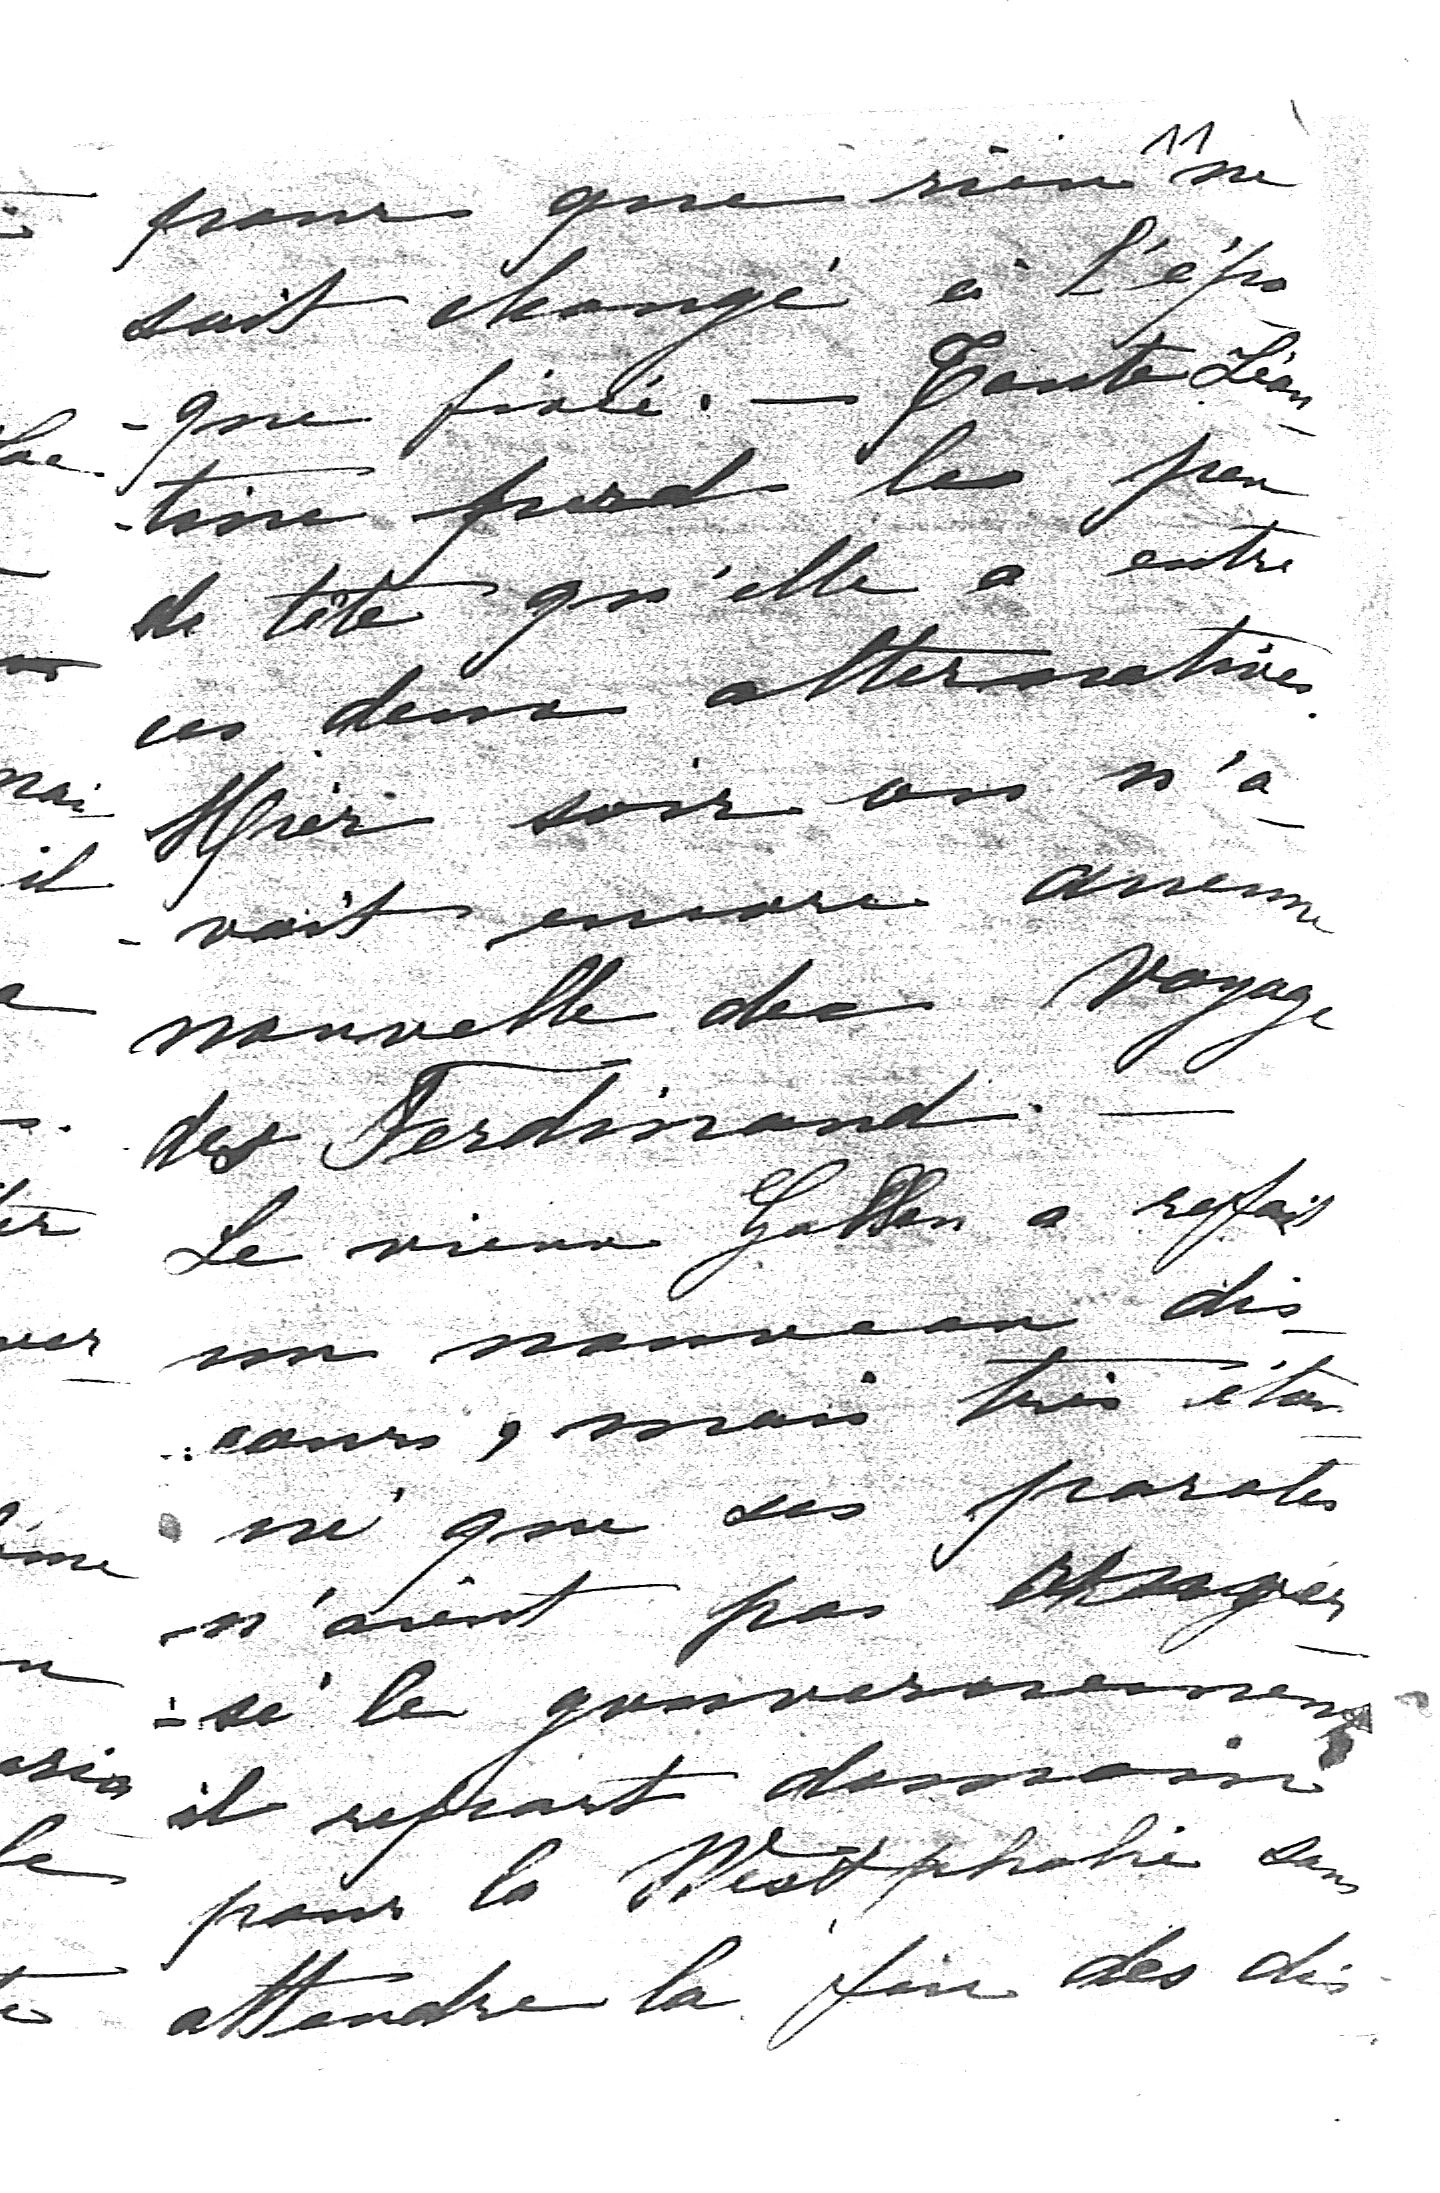 11
pour que rien ne
soit changé à l'épo
-que fixée. — Tante Léon-
-tine perd le peu
de tête qu'elle a entre
ces deux alternatives.
Hier soir on n'a-
-vait encore aucune
nouvelle du Voyage
des Ferdinand. —
Le vieux Galen a refait
un nouveau dis-
cours, mais très éton-
né que ses paroles
n'aient pas
-sé le gouvernement
il repart demain
pour la Westphalie sans
attendre la fin des dis-